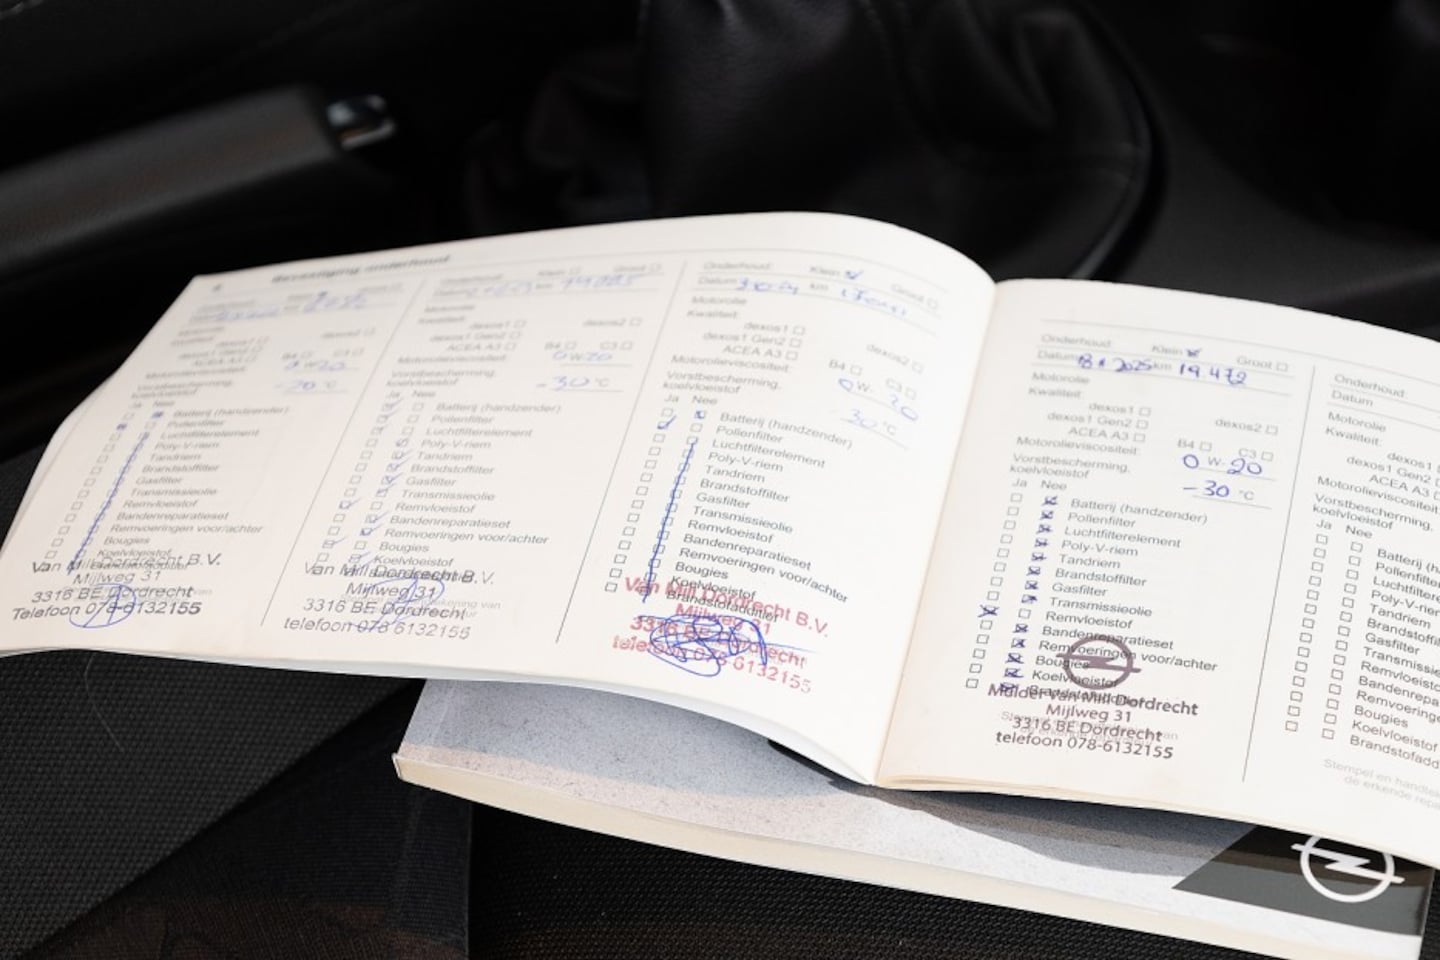 4 Bevestiging onderhoud
Onderhoud: Klein Groot
Motorolie
Kwaliteit:
dexos2
dexos1
dexos1 Gen2
ACEA A3 B4 C3
Motorolieviscositeit: 0 W-20
Vorstbescherming,
koelvloeistof -20 °C
Ja Nee
Batterij (handzender)
Pollenfilter
Luchtfilterelement
Poly-V-riem
Tandriem
Brandstoffilter
Gasfilter
Transmissieolie
Remvloeistof
Bandenreparatieset
Remvoeringen voor/achter
Bougies
Koelvloeistof
Van Mill Dordrecht B.V.
Mijlweg 31
3316 BE Dordrecht
Telefoon 078-6132155
Onderhoud: Klein Groot
Datum km
Motorolie
Kwaliteit:
dexos1 dexos2
dexos1 Gen2
ACEA A3 B4 C3
Motorolieviscositeit: 0 W-20
Vorstbescherming,
koelvloeistof -30 °C
Ja Nee
Batterij (handzender)
Pollenfilter
Luchtfilterelement
Poly-V-riem
Tandriem
Brandstoffilter
Gasfilter
Transmissieolie
Remvloeistof
Bandenreparatieset
Remvoeringen voor/achter
Bougies
Koelvloeistof
Van Mill Dordrecht B.V.
Mijlweg 31
3316 BE Dordrecht
telefoon 078 6132155
Onderhoud: Klein Groot
Datum km
Motorolie
Kwaliteit:
dexos1 dexos2
dexos1 Gen2
ACEA A3 B4 C3
Motorolieviscositeit: 0 W- 20
Vorstbescherming,
koelvloeistof -30 °C
Ja Nee
Batterij (handzender)
Pollenfilter
Luchtfilterelement
Poly-V-riem
Tandriem
Brandstoffilter
Gasfilter
Transmissieolie
Remvloeistof
Bandenreparatieset
Remvoeringen voor/achter
Bougies
Koelvloeistof
Brandstofadditief
Van Mill Dordrecht B.V.
Mijlweg 31
3316 BE Dordrecht
telefoon 078-6132155
Onderhoud: Klein Groot
Datum 2025 km 19.472
Motorolie
Kwaliteit:
dexos1 dexos2
dexos1 Gen2
ACEA A3 B4 C3
Motorolieviscositeit: 0 W-20
Vorstbescherming,
koelvloeistof -30 °C
Ja Nee
Batterij (handzender)
Pollenfilter
Luchtfilterelement
Poly-V-riem
Tandriem
Brandstoffilter
Gasfilter
Transmissieolie
Remvloeistof
Bandenreparatieset
Remvoeringen voor/achter
Bougies
Koelvloeistof
Mulder Van Mill Dordrecht
Mijlweg 31
3316 BE Dordrecht
telefoon 078-6132155
Onderhoud:
Datum
Motorolie
Kwaliteit:
dexos1
dexos1 Gen2
ACEA A3
Motorolieviscositeit:
Vorstbescherming,
koelvloeistof
Ja Nee
Batterij (ha
Pollenfilter
Luchtfilte
Poly-V-r
Tandriem
Brandstoffi
Gasfilter
Transmissie
Remvloeisto
Bandenrepa
Remvoering
Bougies
Koelvloeistof
Brandstofadd
Stempel en handtek
de erkende repa